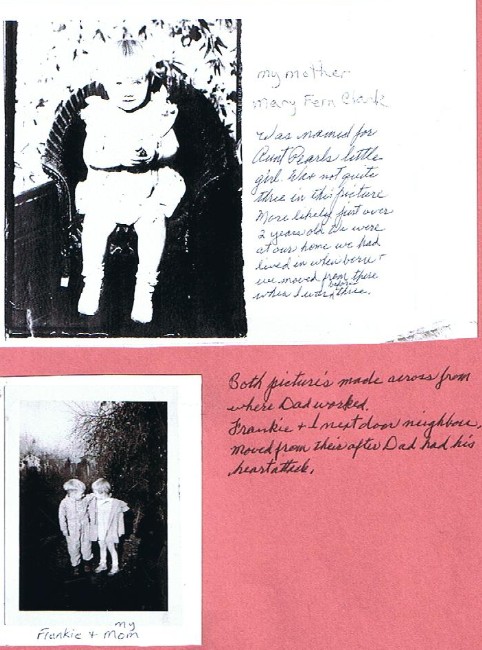 my mother
Mary Fern Clark
Was named for
Aunt Pearls little
girl. Was not quite
three in this picture
More likely just over
2 years old
at our home we had
lived in when born
we moved from there
before
when I was three.
Both picture's made across from
where Dad worked.
Frankie + I next door neighbors,
moved from their after Dad had his
heart attack.
my
Frankie + Mom